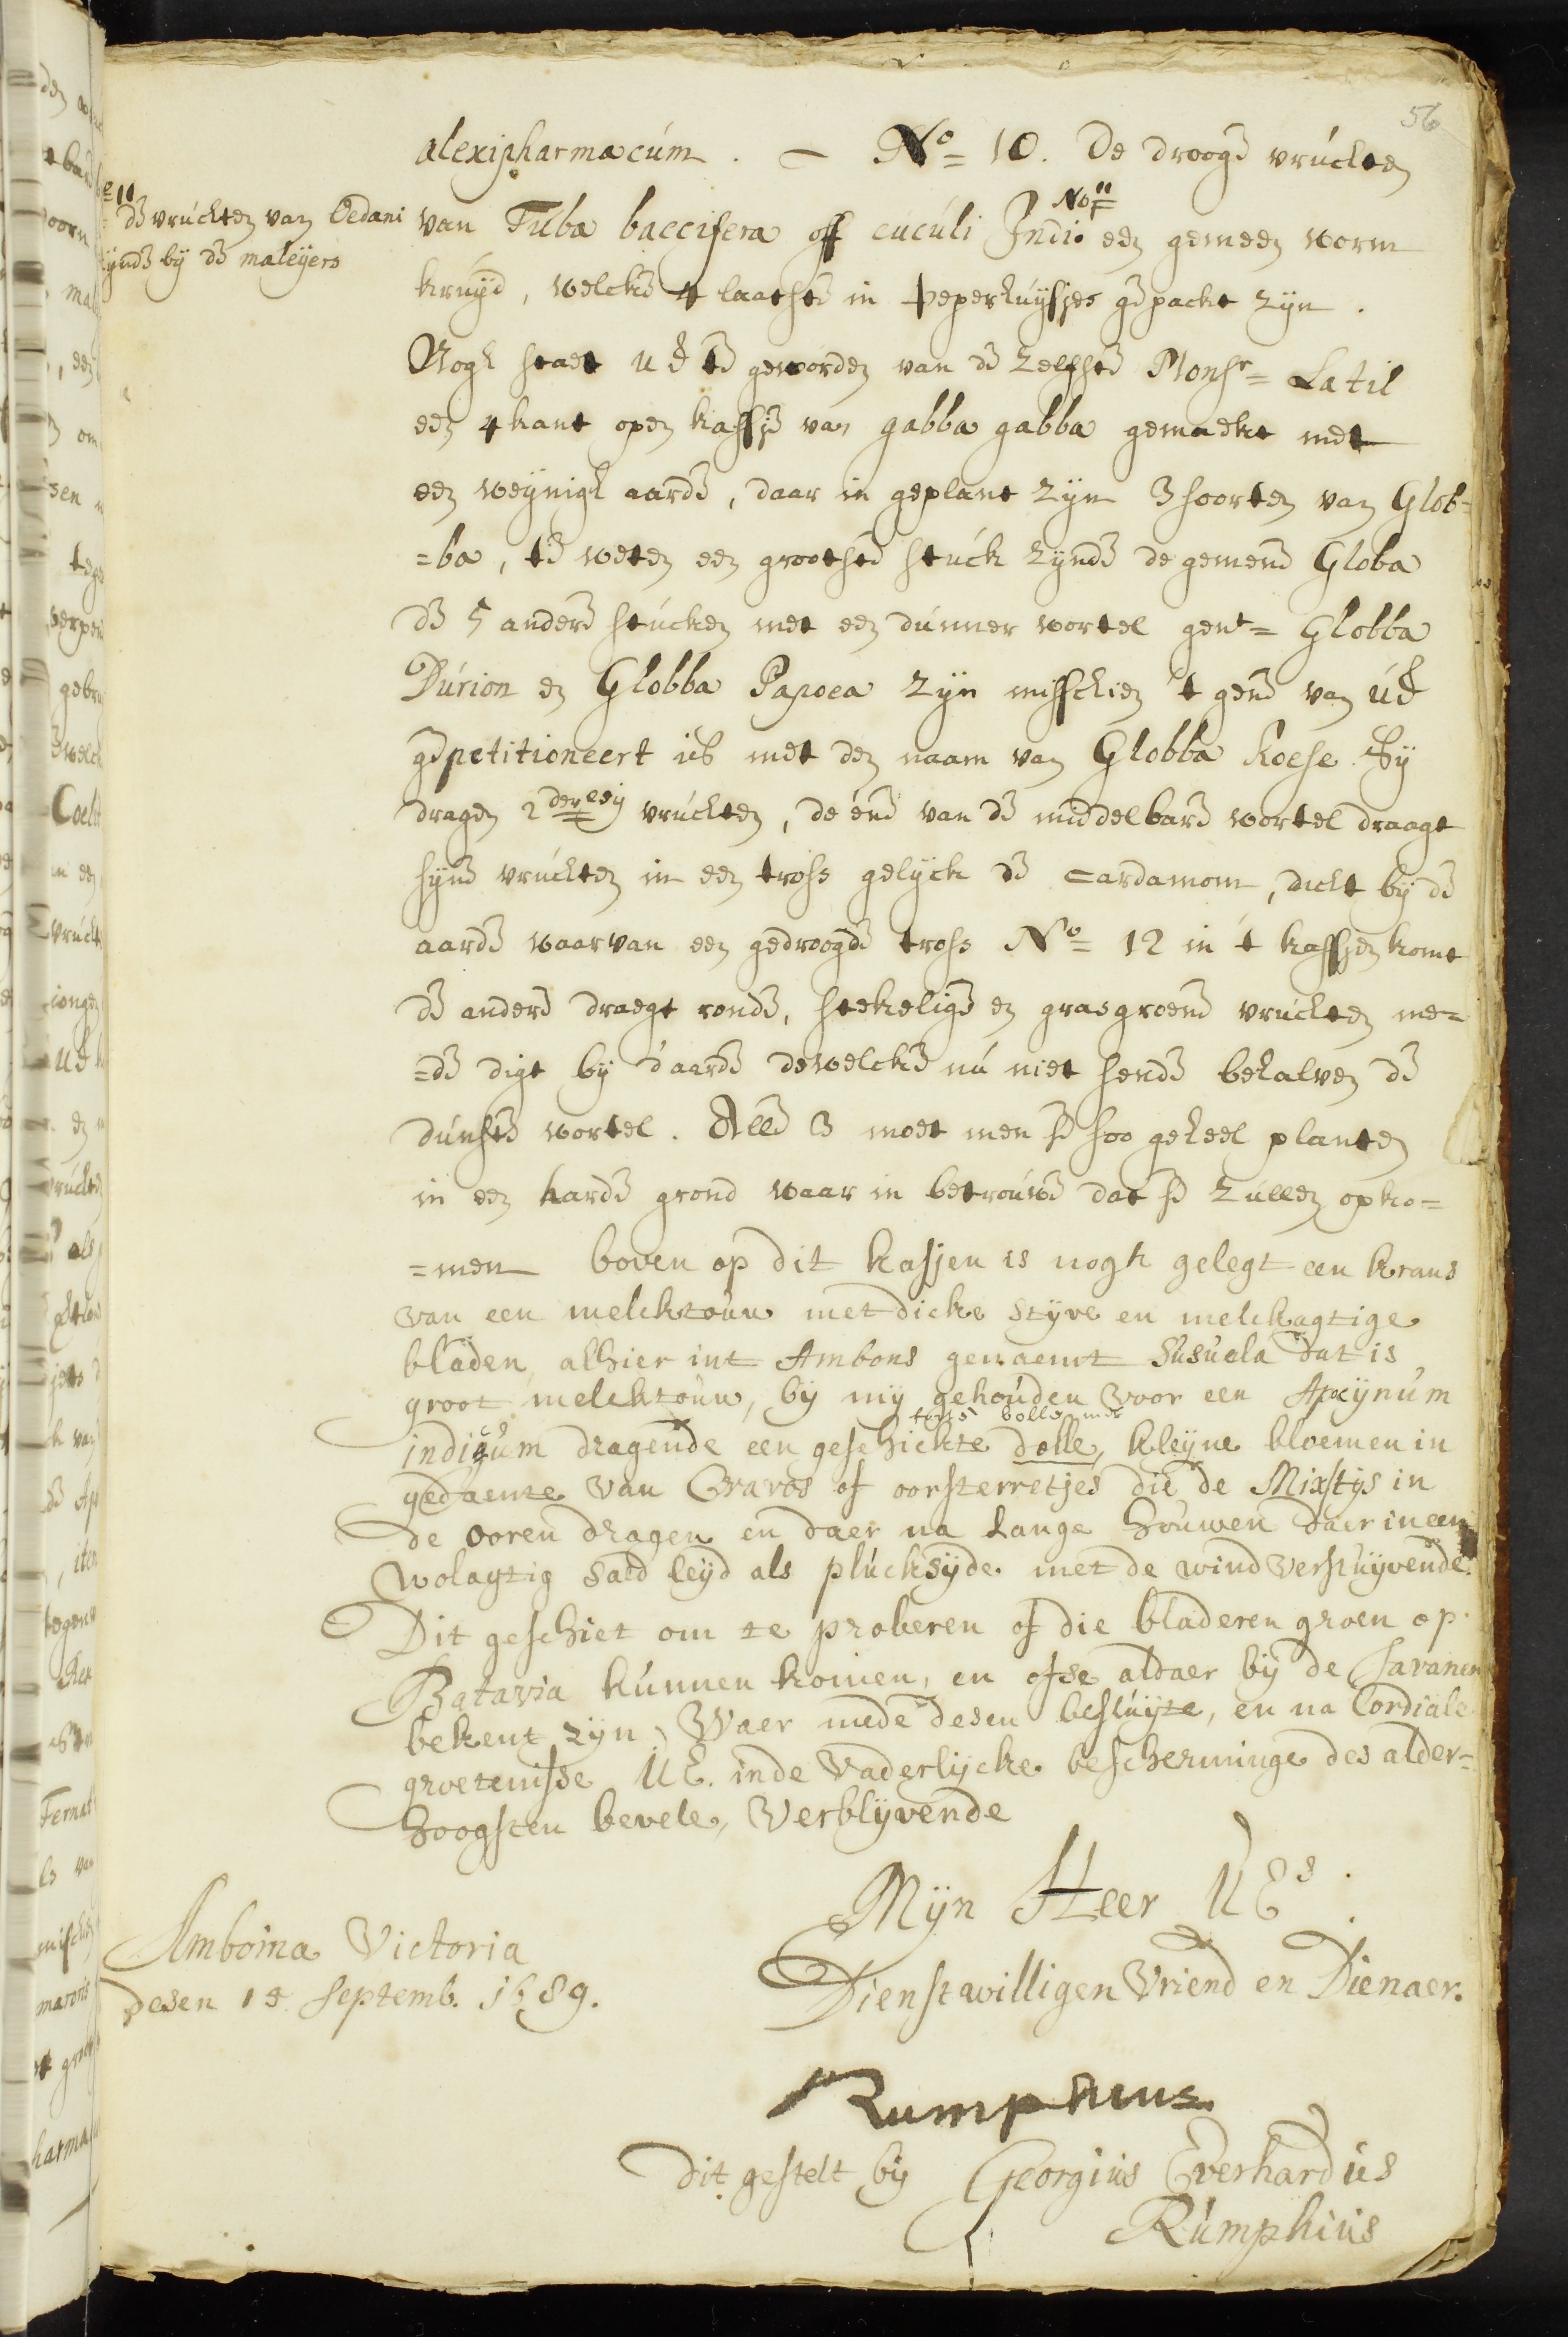 56
alexipharmacúm. — No= 10. De drooge vrúchten
11
de vrúchten van Oedani
zynde bÿ de maleÿers
van Tuba baccifera off cucúli Indi. No= 11 een gemeen worm
krúÿd, welcke 4 laatste in peperhúÿsjes gepackt zÿn.
Nogh staet UE te geworden van de zelffste Monsr= Latil
een 4 kant open kassje van gabba gabba gemaekt met
een weÿnigh aarde, daar in geplant zÿn 3 soorten van Glob=
=ba, te weten een grootste stúck zÿnde de gemene Globa
de 5 andere stúcken met een dúnner wortel gent= Globba
Dúrion en Globba Papoea zÿn misschien 't gene van UE
gepetitioneert is met den naam van Globba koese. Sÿ
dragen 2 derleÿ vrúchten, de éne van de middelbare wortel draagt
sÿne vrúchten in een tross gelÿck de cardamom, dicht bÿ de
aarde waarvan een gedroogde tross No= 12 in 't kassjen komt
de andere draegt ronde, stekelige en grasgroene vrúchten me=
=de digt bÿ d'aarde dewelcke nú niet sende behalven de
dúnste wortel. Alle 3 moet men se soo geheel planten
in een harde grond waar in betroúwe dat se zúllen opko=
=men boven op dit kasjen is nogh gelegt een krans
van een melcktoúw met dicke styve en melckagtige
bladen, alhier int Ambons genaemt Súsúela dat is
groot melcktoúw, bÿ mÿ gehoúden voor een Apocÿnúm
indicúm dragende een geschickte dolle, kleÿne bloemen in
bolle
gedaente van Cravos of oorsterretjes die de Mixstÿs in
de ooren dragen en daer na lange hoúwen daer in een
wolagtig saed leÿd als plúcksÿde met de wind verstúÿvende.
Dit geschiet om te proberen of die bladeren groen op
Batavia kúnnen komen, en ofse aldaer bÿ de Javanen
bekent zÿn, Waer mede desen beslúÿte, en na Cordiale
groetenisse UE. inde vaderlÿcke bescherminge des alder=
hoogsten bevele, Verblÿvende
Mÿn Heer UEs.
Amboina Victoria
Desen 15 septemb. 1689.
Dienstwilligen Vriend en Dienaer.
Rumphius.
Dit gestelt bÿ Georgiús Everhardús
Rúmphiús